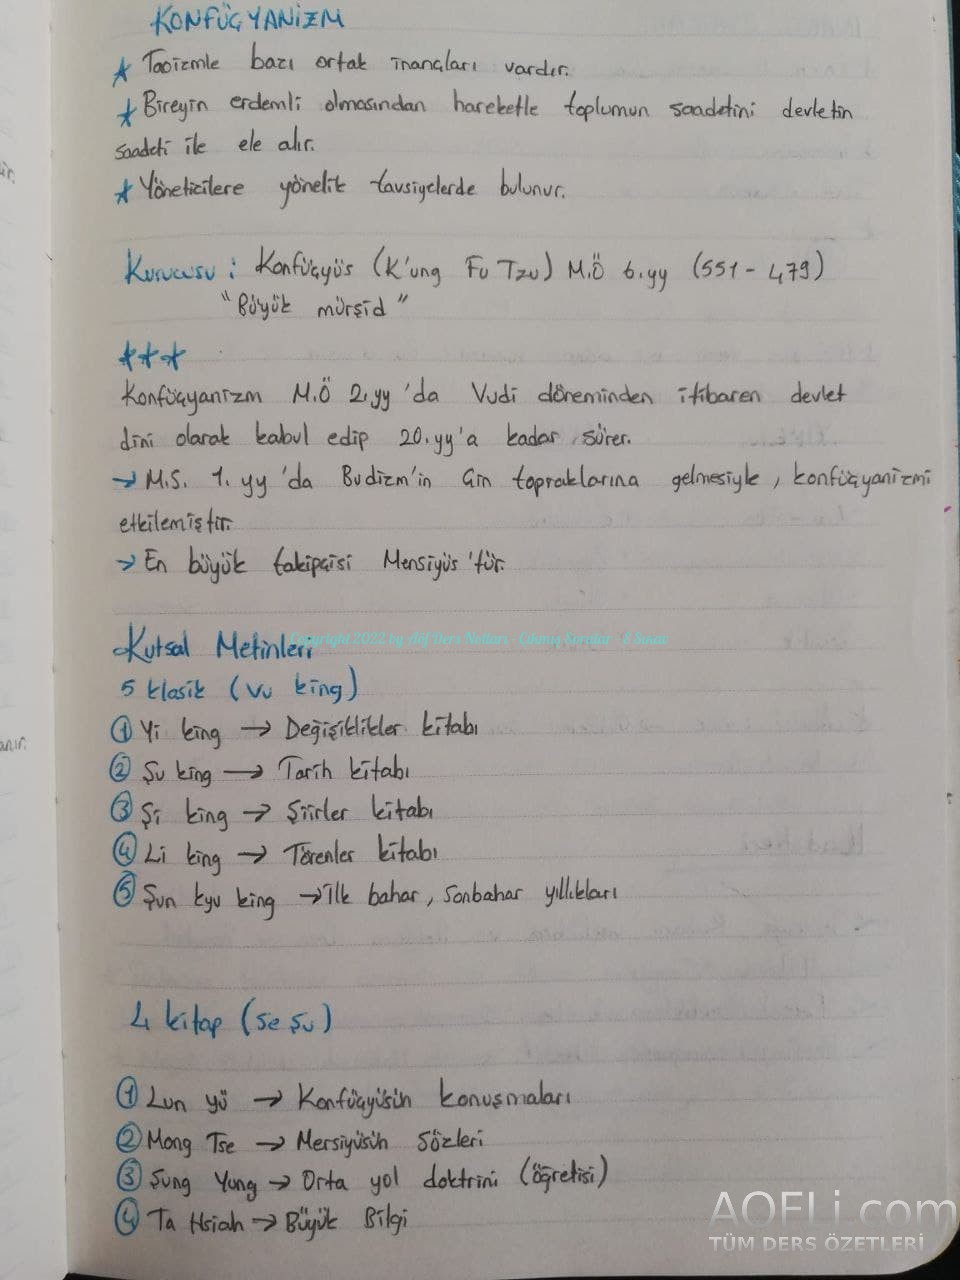 KONFÜÇYANİZM
* Taoizmle bazı ortak inançları vardır.
* Bireyin erdemli olmasından hareketle toplumun saadetini devletin
saadeti ile ele alır.
* Yöneticilere yönelik tavsiyelerde bulunur.
Kurucusu : Konfüçyüs (K'ung Fu Tzu) M.Ö 6.yy (551 - 479)
"Büyük mürşid"
***
Konfüçyanizm M.Ö 2.yy 'da Vudi döneminden itibaren devlet
dini olarak kabul edip 20.yy'a kadar sürer.
→ M.S. 1. yy 'da Budizm'in Çin topraklarına gelmesiyle, konfüçyanizmi
etkilemiştir.
→ En büyük takipçisi Mensiyüs 'tür.
Copyright 2022 by Aöf Ders Notları Çıkmış Sorular
Kutsal Metinleri
5 klasik (Vu king)
① Yi king → Değişiklikler kitabı
② Şu king → Tarih kitabı
③ Şi king → Şiirler kitabı
④ Li king → Törenler kitabı
⑤ Şun kyu king → İlk bahar, sonbahar yıllıkları
4 kitap (Se Şu)
① Lun yü → Konfüçyüsün konuşmaları
② Mong Tse → Mersiyüsün sözleri
③ Şung Yung → Orta yol doktrini (öğretisi)
④ Ta Hsiah → Büyük Bilgi
AOFLi.com
TÜM DERS ÖZETLERİ